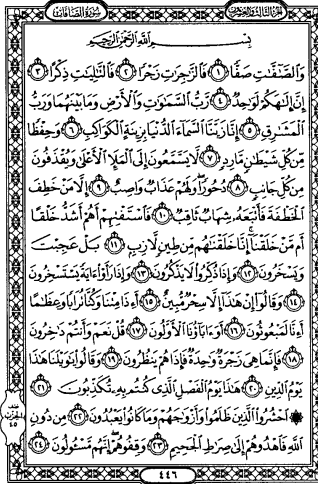 سُورَةُ الصَّافَّاتِ
الجُزْءُ الثَّالِثُ وَالعِشْرُونَ
بِسْمِ اللَّهِ الرَّحْمَٰنِ الرَّحِيمِ
وَالصَّافَّاتِ صَفًّا ١ فَالزَّاجِرَاتِ زَجْرًا ٢ فَالتَّالِيَاتِ ذِكْرًا ٣
إِنَّ إِلَٰهَكُمْ لَوَاحِدٌ ٤ رَبُّ السَّمَاوَاتِ وَالْأَرْضِ وَمَا بَيْنَهُمَا وَرَبُّ
الْمَشَارِقِ ٥ إِنَّا زَيَّنَّا السَّمَاءَ الدُّنْيَا بِزِينَةٍ الْكَوَاكِبِ ٦ وَحِفْظًا
مِّن كُلِّ شَيْطَانٍ مَّارِدٍ ٧ لَّا يَسَّمَّعُونَ إِلَى الْمَلَإِ الْأَعْلَىٰ وَيُقْذَفُونَ
مِن كُلِّ جَانِبٍ ٨ دُحُورًا وَلَهُمْ عَذَابٌ وَاصِبٌ ٩ إِلَّا مَنْ خَطِفَ
الْخَطْفَةَ فَأَتْبَعَهُ شِهَابٌ ثَاقِبٌ ١٠ فَاسْتَفْتِهِمْ أَهُمْ أَشَدُّ خَلْقًا
أَم مَّنْ خَلَقْنَا إِنَّا خَلَقْنَاهُم مِّن طِينٍ لَّازِبٍ ١١ بَلْ عَجِبْتَ
وَيَسْخَرُونَ ١٢ وَإِذَا ذُكِّرُوا لَا يَذْكُرُونَ ١٣ وَإِذَا رَأَوْا آيَةً يَسْتَسْخِرُونَ
١٤ وَقَالُوا إِنْ هَٰذَا إِلَّا سِحْرٌ مُّبِينٌ ١٥ أَإِذَا مِتْنَا وَكُنَّا تُرَابًا وَعِظَامًا
أَإِنَّا لَمَبْعُوثُونَ ١٦ أَوَآبَاؤُنَا الْأَوَّلُونَ ١٧ قُلْ نَعَمْ وَأَنتُمْ دَاخِرُونَ
١٨ فَإِنَّمَا هِيَ زَجْرَةٌ وَاحِدَةٌ فَإِذَا هُمْ يَنظُرُونَ ١٩ وَقَالُوا يَا وَيْلَنَا هَٰذَا
يَوْمُ الدِّينِ ٢٠ هَٰذَا يَوْمُ الْفَصْلِ الَّذِي كُنتُم بِهِ تُكَذِّبُونَ ٢١
۞ احْشُرُوا الَّذِينَ ظَلَمُوا وَأَزْوَاجَهُمْ وَمَا كَانُوا يَعْبُدُونَ ٢٢ مِن دُونِ
اللَّهِ فَاهْدُوهُمْ إِلَىٰ صِرَاطِ الْجَحِيمِ ٢٣ وَقِفُوهُمْ إِنَّهُم مَّسْئُولُونَ ٢٤
٤٤٦